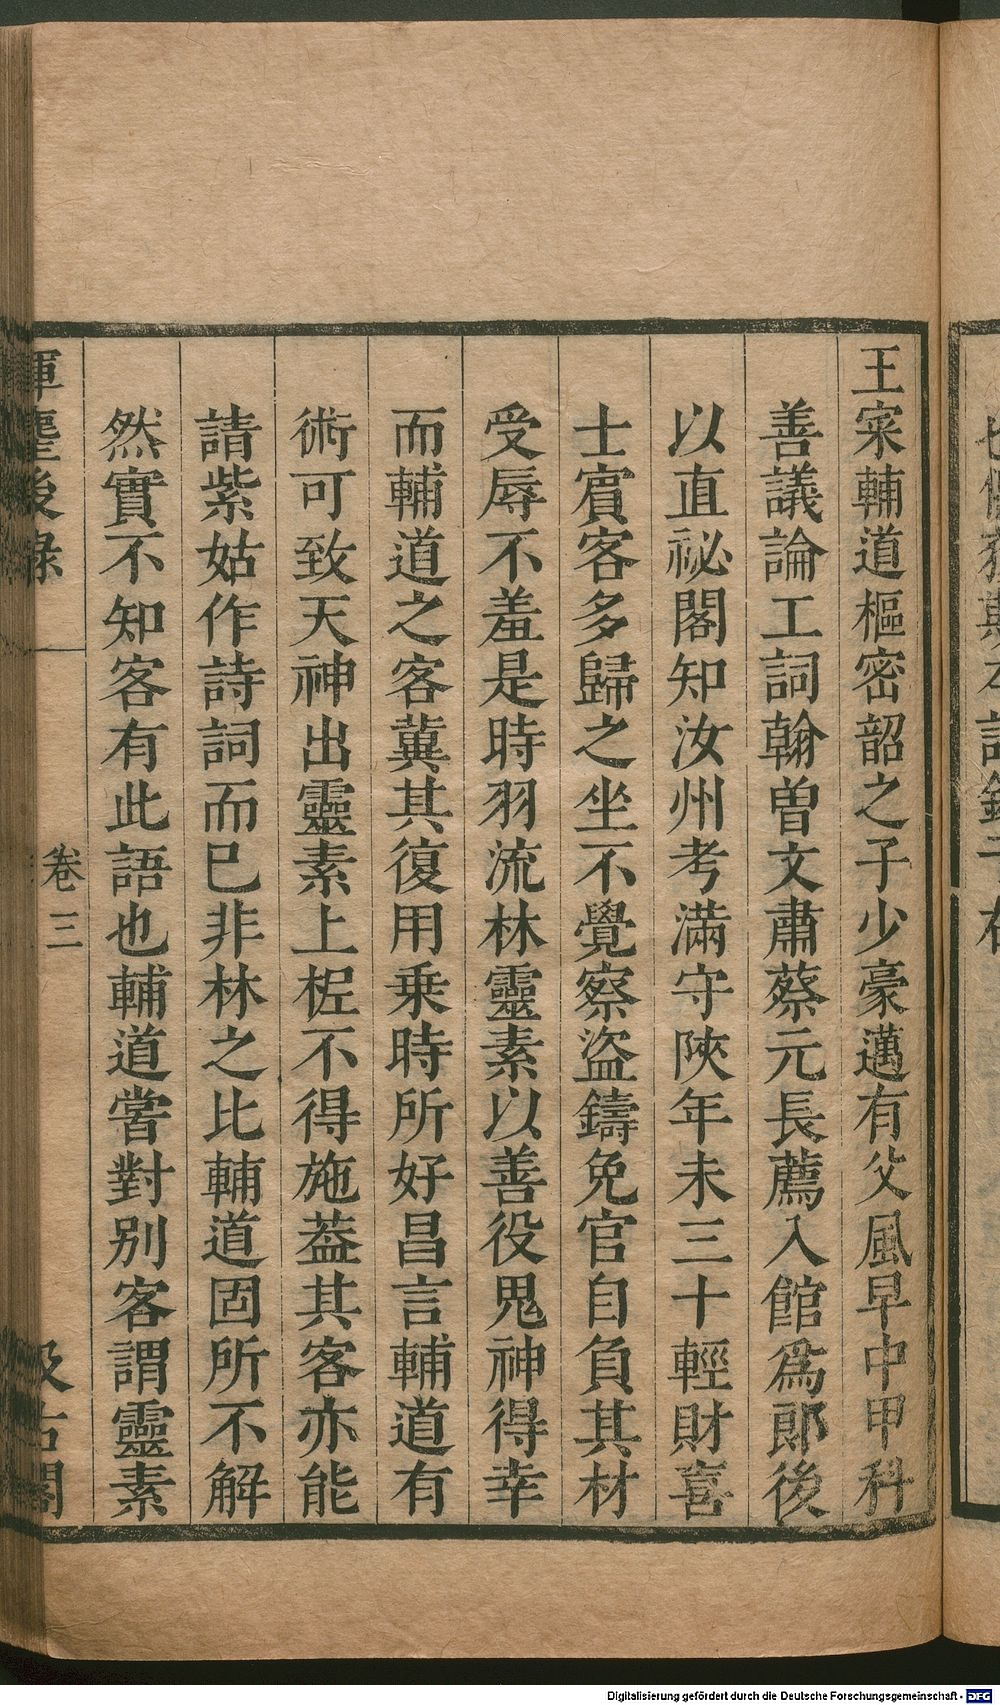 王寀輔道樞密韶之子少豪邁有父風早中甲科
善議論工詞翰曽文肅蔡元長薦入館爲郎後
以直祕閣知汝州考滿守陝年未三十輕財喜
士賓客多歸之坐不覺察盜鑄免官自負其材
受辱不羞是時羽流林靈素以善役鬼神得幸
而輔道之客冀其復用乗時所好昌言輔道有
術可致天神出靈素上柅不得施葢其客亦能
請紫姑作詩詞而已非林之比輔道固所不解
然實不知客有此語也輔道嘗對別客謂靈素
揮麈後錄
卷三
汲古閣
Digitalisierung gefördert durch die Deutsche Forschungsgemeinschaft - DFG